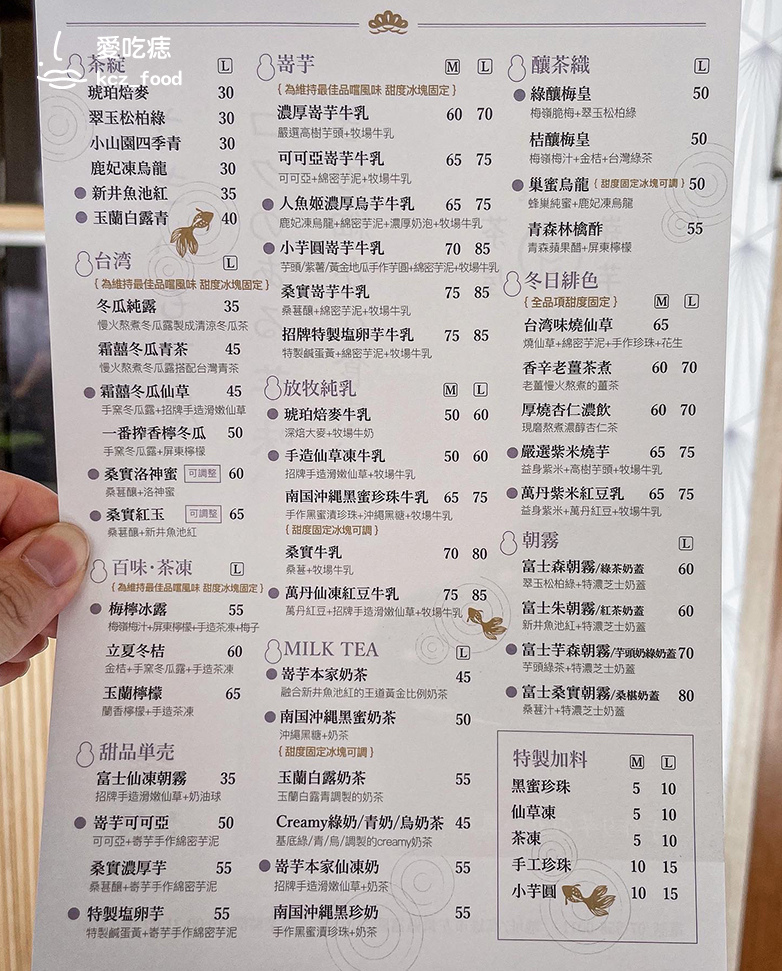 愛吃痣
kcz_food
茶綻 L
琥珀焙麥 30
翠玉松柏綠 30
小山園四季青 30
鹿妃凍烏龍 30
新井魚池紅 35
玉蘭白露青 40
台湾 L
{為維持最佳品嚐風味 甜度冰塊固定}
冬瓜純露 35
慢火熬煮冬瓜露製成清涼冬瓜茶
霜囍冬瓜青茶 45
慢火熬煮冬瓜露搭配台灣青茶
霜囍冬瓜仙草 45
手窯冬瓜露+招牌手造滑嫩仙草
一番搾香檸冬瓜 50
手窯冬瓜露+屏東檸檬
桑實洛神蜜 可調整 60
桑葚釀+洛神蜜
桑實紅玉 可調整 65
桑葚釀+新井魚池紅
百味·茶凍 L
{為維持最佳品嚐風味 甜度冰塊固定}
梅檸冰露 55
梅嶺梅汁+屏東檸檬+手造茶凍+梅子
立夏冬桔 60
金桔+手窯冬瓜露+手造茶凍
玉蘭檸檬 65
蘭香檸檬+手造茶凍
甜品単売
富士仙凍朝霧 35
招牌手造滑嫩仙草+奶油球
嵜芋可可亞 50
可可亞+嵜芋手作綿密芋泥
桑實濃厚芋 55
桑葚釀+嵜芋手作綿密芋泥
特製塩卵芋 55
特製鹹蛋黃+嵜芋手作綿密芋泥
嵜芋 M L
{為維持最佳品嚐風味 甜度冰塊固定}
濃厚嵜芋牛乳 60 70
嚴選高樹芋頭+牧場牛乳
可可亞嵜芋牛乳 65 75
可可亞+綿密芋泥+牧場牛乳
人魚姬濃厚烏芋牛乳 65 75
鹿妃凍烏龍+綿密芋泥+濃厚奶泡+牧場牛乳
小芋圓嵜芋牛乳 70 85
芋頭/紫薯/黃金地瓜手作芋圓+綿密芋泥+牧場牛乳
桑實嵜芋牛乳 75 85
桑葚釀+綿密芋泥+牧場牛乳
招牌特製塩卵芋牛乳 75 85
特製鹹蛋黃+綿密芋泥+牧場牛乳
放牧純乳 M L
琥珀焙麥牛乳 50 60
深焙大麥+牧場牛奶
手造仙草凍牛乳 50 60
招牌手造滑嫩仙草+牧場牛乳
南国沖縄黑蜜珍珠牛乳 65 75
手作黑蜜漬珍珠+沖縄黑糖+牧場牛乳
{甜度固定冰塊可調}
桑實牛乳 70 80
桑葚+牧場牛乳
萬丹仙凍紅豆牛乳 75 85
萬丹紅豆+招牌手造滑嫩仙草+牧場牛乳
MILK TEA L
嵜芋本家奶茶 45
融合新井魚池紅的王道黃金比例奶茶
南国沖縄黑蜜奶茶 50
沖繩黑糖+奶茶
{甜度固定冰塊可調}
玉蘭白露奶茶 55
玉蘭白露青調製的奶茶
Creamy綠奶/青奶/烏奶茶 45
基底綠/青/烏/調製的creamy奶茶
嵜芋本家仙凍奶 55
招牌手造滑嫩仙草+奶茶
南国沖縄黑珍奶 55
手作黑蜜漬珍珠+奶茶
釀茶織 L
綠釀梅皇 50
梅嶺脆梅+翠玉松柏綠
桔釀梅皇 50
梅嶺梅汁+金桔+台灣綠茶
巢蜜烏龍 {甜度固定冰塊可調} 50
蜂巢純蜜+鹿妃凍烏龍
青森林檎酢 55
青森蘋果醋+屏東檸檬
冬日緋色
{全品項甜度固定} M L
台湾味燒仙草 65
燒仙草+綿密芋泥+手作珍珠+花生
香辛老薑茶煮 60 70
老薑慢火熬煮的薑茶
厚燒杏仁濃飲 60 70
現磨熬煮濃醇杏仁茶
嚴選紫米燒芋 65 75
益身紫米+高樹芋頭+牧場牛乳
萬丹紫米紅豆乳 65 75
益身紫米+萬丹紅豆+牧場牛乳
朝霧 L
富士森朝霧/綠茶奶蓋 60
翠玉松柏綠+特濃芝士奶蓋
富士朱朝霧/紅茶奶蓋 60
新井魚池紅+特濃芝士奶蓋
富士芋森朝霧/芋頭奶綠奶蓋 70
芋頭綠茶+特濃芝士奶蓋
富士桑實朝霧/桑椹奶蓋 80
桑葚汁+特濃芝士奶蓋
特製加料 M L
黑蜜珍珠 5 10
仙草凍 5 10
茶凍 5 10
手工珍珠 10 15
小芋圓 10 15